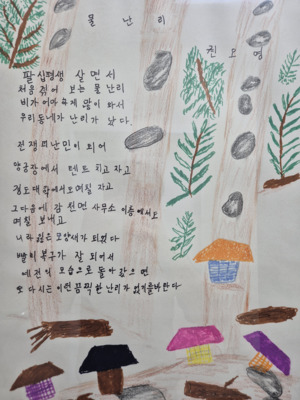 물 난 리
권 오 영
팔 십 평생 살 면 서
처음 겪 어 보는 물 난리
비가 어마 하게 많이 와서
우리 동네가 난리가 났다.
전 쟁 피난민이 되 어
양궁장에서 텐트 치고 자고
경도대학에서도 며칠 자고
그다음에 감천면 사무소 이층에서도
며칠 보내고
나라 잃은 모양새가 되었다
빨리 복구가 잘 되어서
예전의 모습으로 돌아 갔으면
또 다시는 이런 끔찍한 난리가 없기를바란다